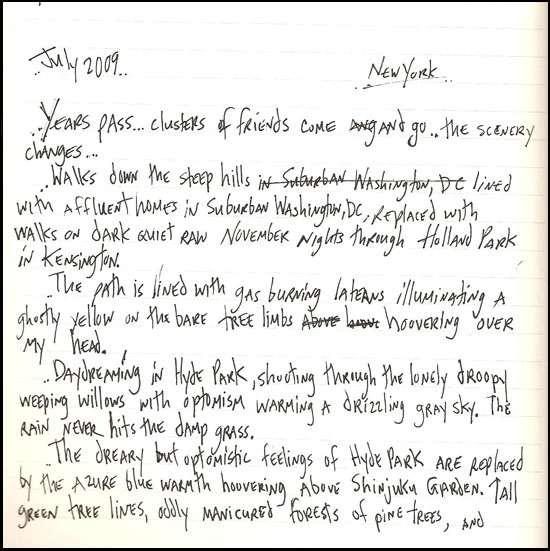 ..July 2009..
..New York..
..Years pass... clusters of friends come and go.. the scenery
changes...
..Walks down the steep hills in Suburban Washington, DC lined
with affluent homes in Suburban Washington, DC, replaced with
walks on dark quiet raw November nights through Holland Park
in Kensington.
..The path is lined with gas burning laterns illuminating a
ghostly yellow on the bare tree limbs above hoovering over
my head.
..Daydreaming in Hyde Park, shooting through the lonely droopy
weeping willows with optomism warming a drizzling gray sky. The
rain never hits the damp grass.
..The dreary but optomistic feelings of Hyde Park are replaced
by the azure blue warmth hoovering above Shinjuku Garden. Tall
green tree lines, oddly manicured forests of pine trees, and